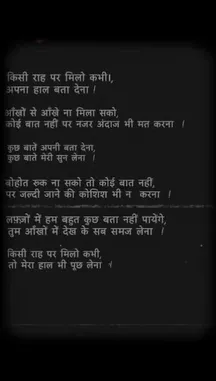 किसी राह पर मिलो कभी।,
अपना हाल बता देना !
आँखों से आँखे ना मिला सको,
कोई बात नहीं पर नजर अंदाज भी मत करना !
कुछ बातें अपनी बता देना,
कुछ बाते मेरी सुन लेना !
बोहोत रुक ना सको तो कोई बात नहीं,
पर जल्दी जाने की कोशिश भी न करना !
लफ़्ज़ों में हम बहुत कुछ बता नहीं पायेंगे,
तुम आँखों में देख के सब समज लेना !
किसी राह पर मिलो कभी,
तो मेरा हाल भी पूछ लेना !